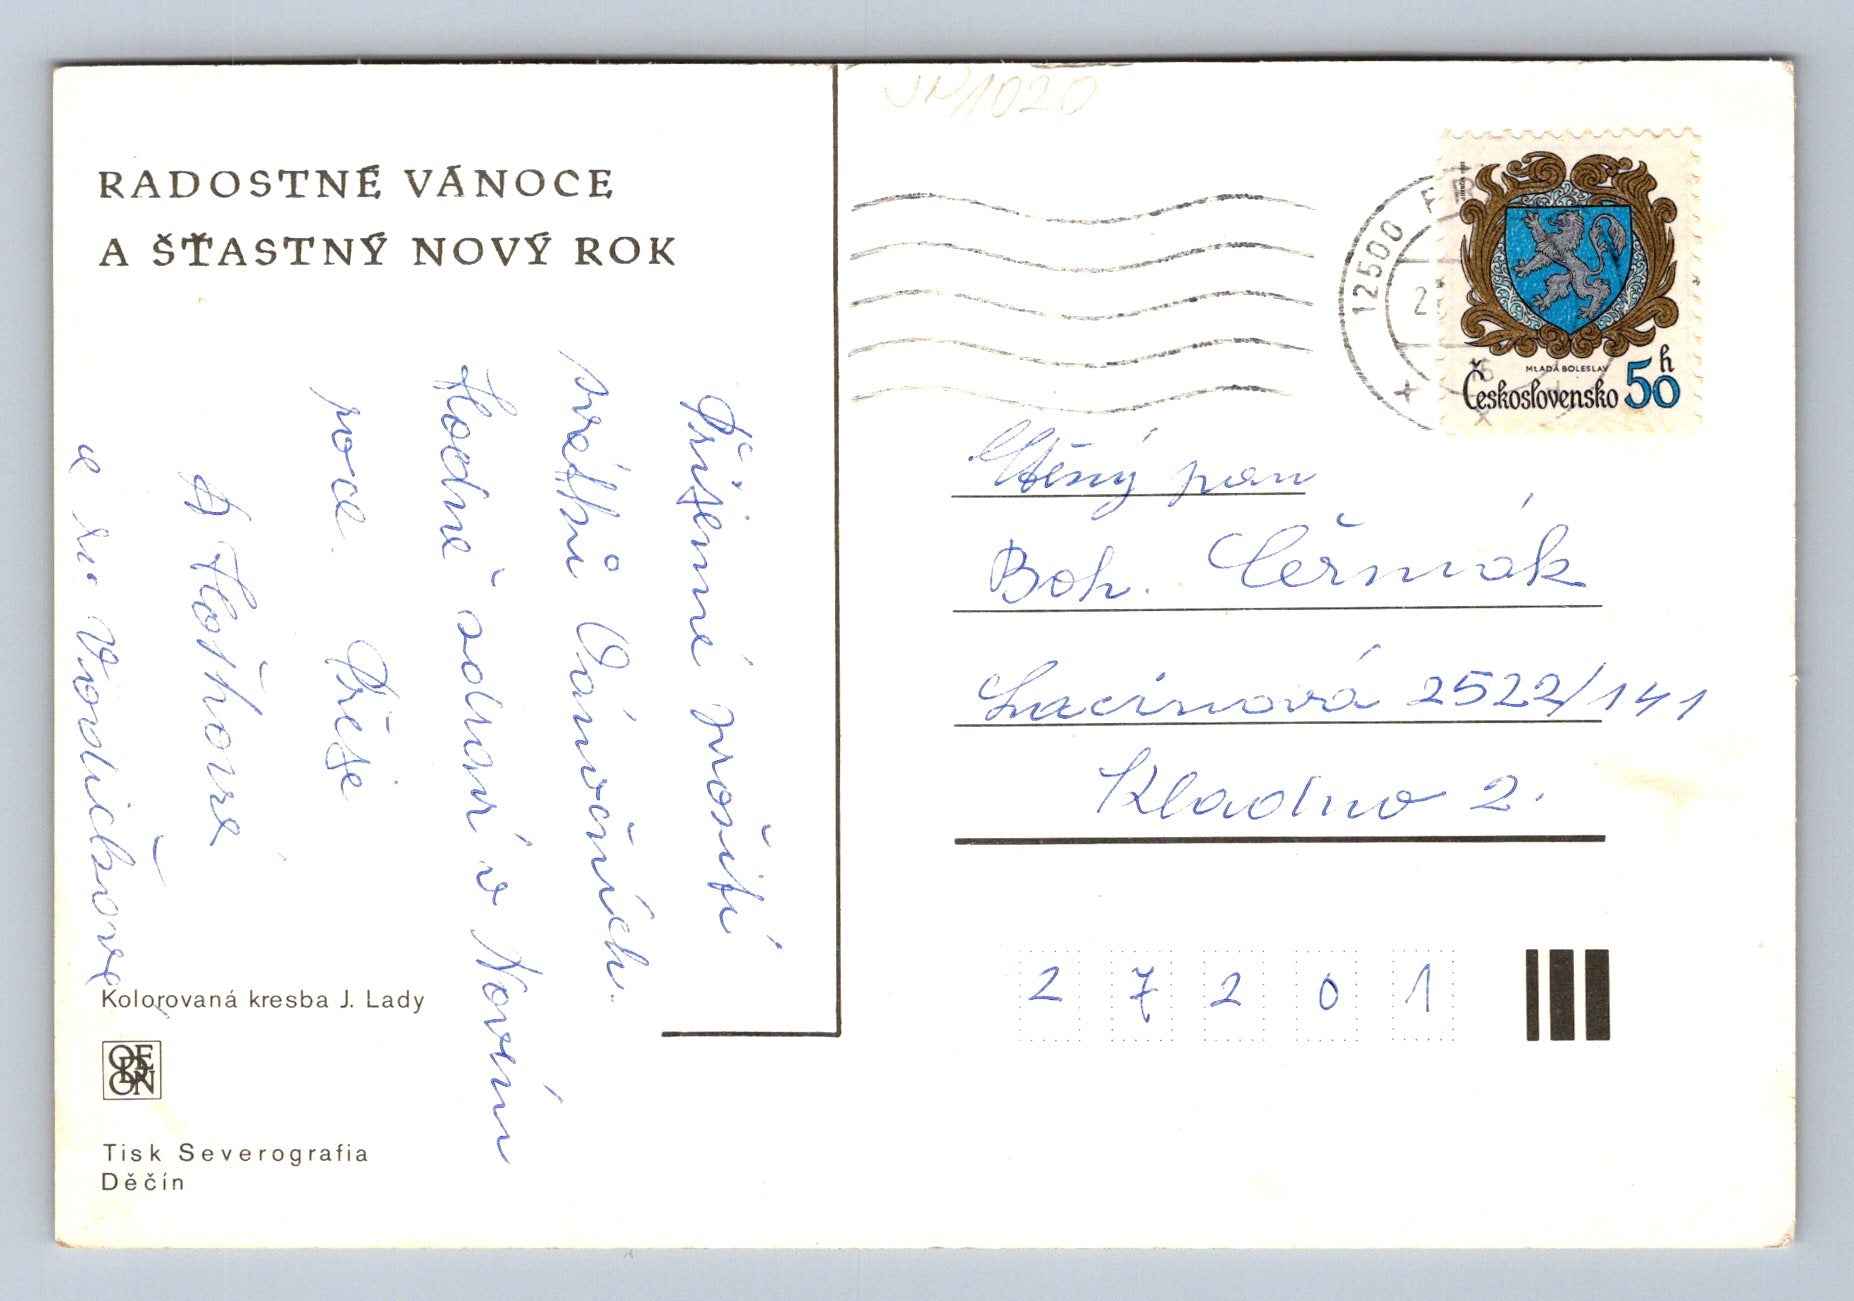 RADOSTNÉ VÁNOCE
A ŠŤASTNÝ NOVÝ ROK
Příjemné prožití
svátků Vánočních.
Hodně zdraví v Novém
roce. Přeje
a Vodičkové
Kolorovaná kresba J. Lady
ODEON
Tisk Severografia
Děčín
1020
12500
MLADÁ BOLESLAV
Československo 50 h
Ctěný pan
Boh. Čermák
Lacinová 2522/141
Kladno 2.
2 7 2 0 1